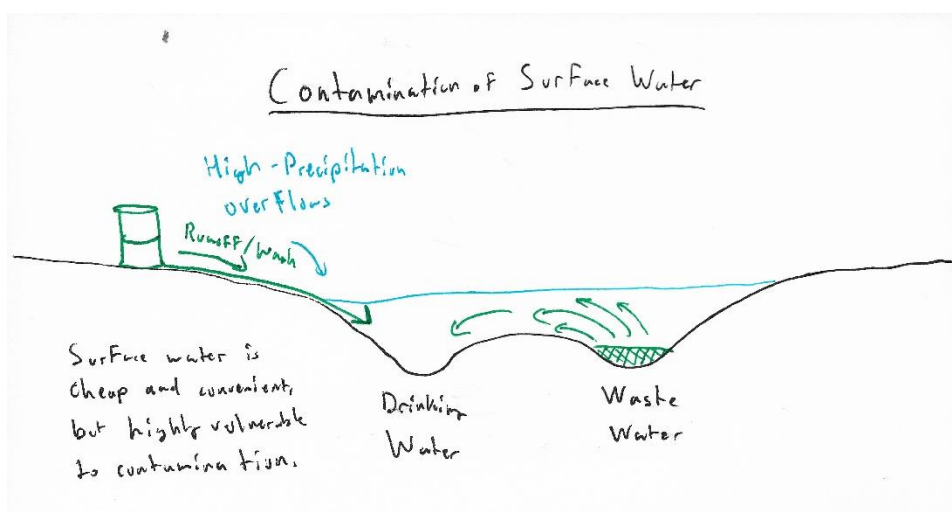 Contamination of Surface Water
High-Precipitation
overflows
Runoff/Wash
Surface water is
cheap and convenient,
but highly vulnerable
to contamination.
Drinking
Water
Waste
Water